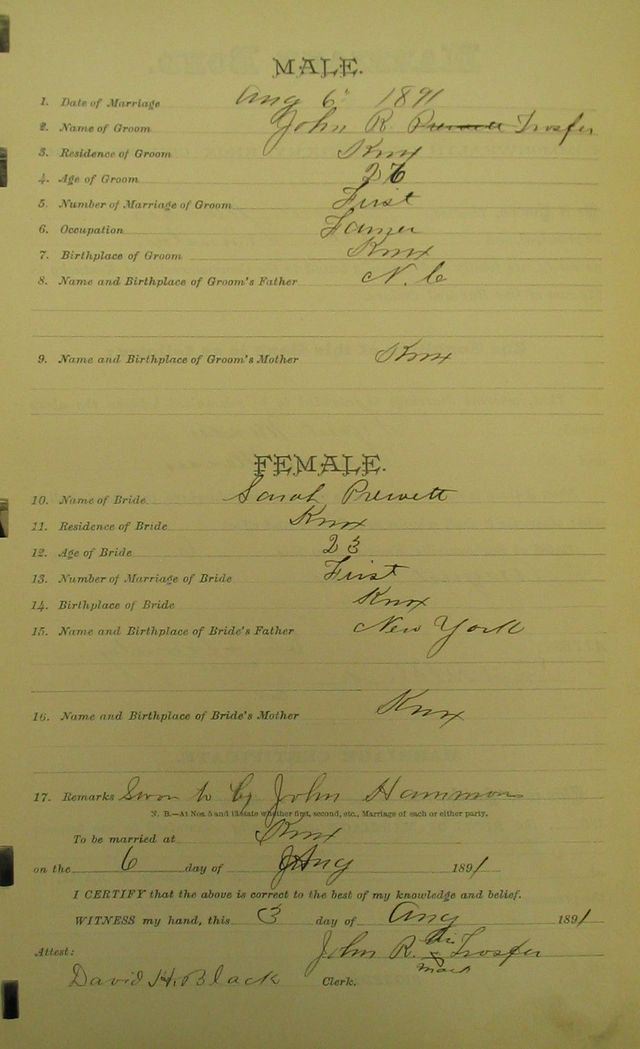 MALE.
1. Date of Marriage Aug 6" 1891
2. Name of Groom John R. Prewett Trosfer
3. Residence of Groom Knox
4. Age of Groom 26
5. Number of Marriage of Groom First
6. Occupation Famer
7. Birthplace of Groom Knox
8. Name and Birthplace of Groom's Father N. C
9. Name and Birthplace of Groom's Mother Knox
FEMALE.
10. Name of Bride Sarah Prewett
11. Residence of Bride Knox
12. Age of Bride 23
13. Number of Marriage of Bride First
14. Birthplace of Bride Knox
15. Name and Birthplace of Bride's Father New York
16. Name and Birthplace of Bride's Mother Knox
17. Remarks Swon to by John Hammons
N. B.—At Nos. 5 and 13 state whether first, second, etc., Marriage of each or either party.
To be married at Knox
on the 6 day of Aug 1891
I CERTIFY that the above is correct to the best of my knowledge and belief.
WITNESS my hand, this 3 day of Aug 1891
Attest: John R. his x mark Trosfer
David H. Black Clerk.